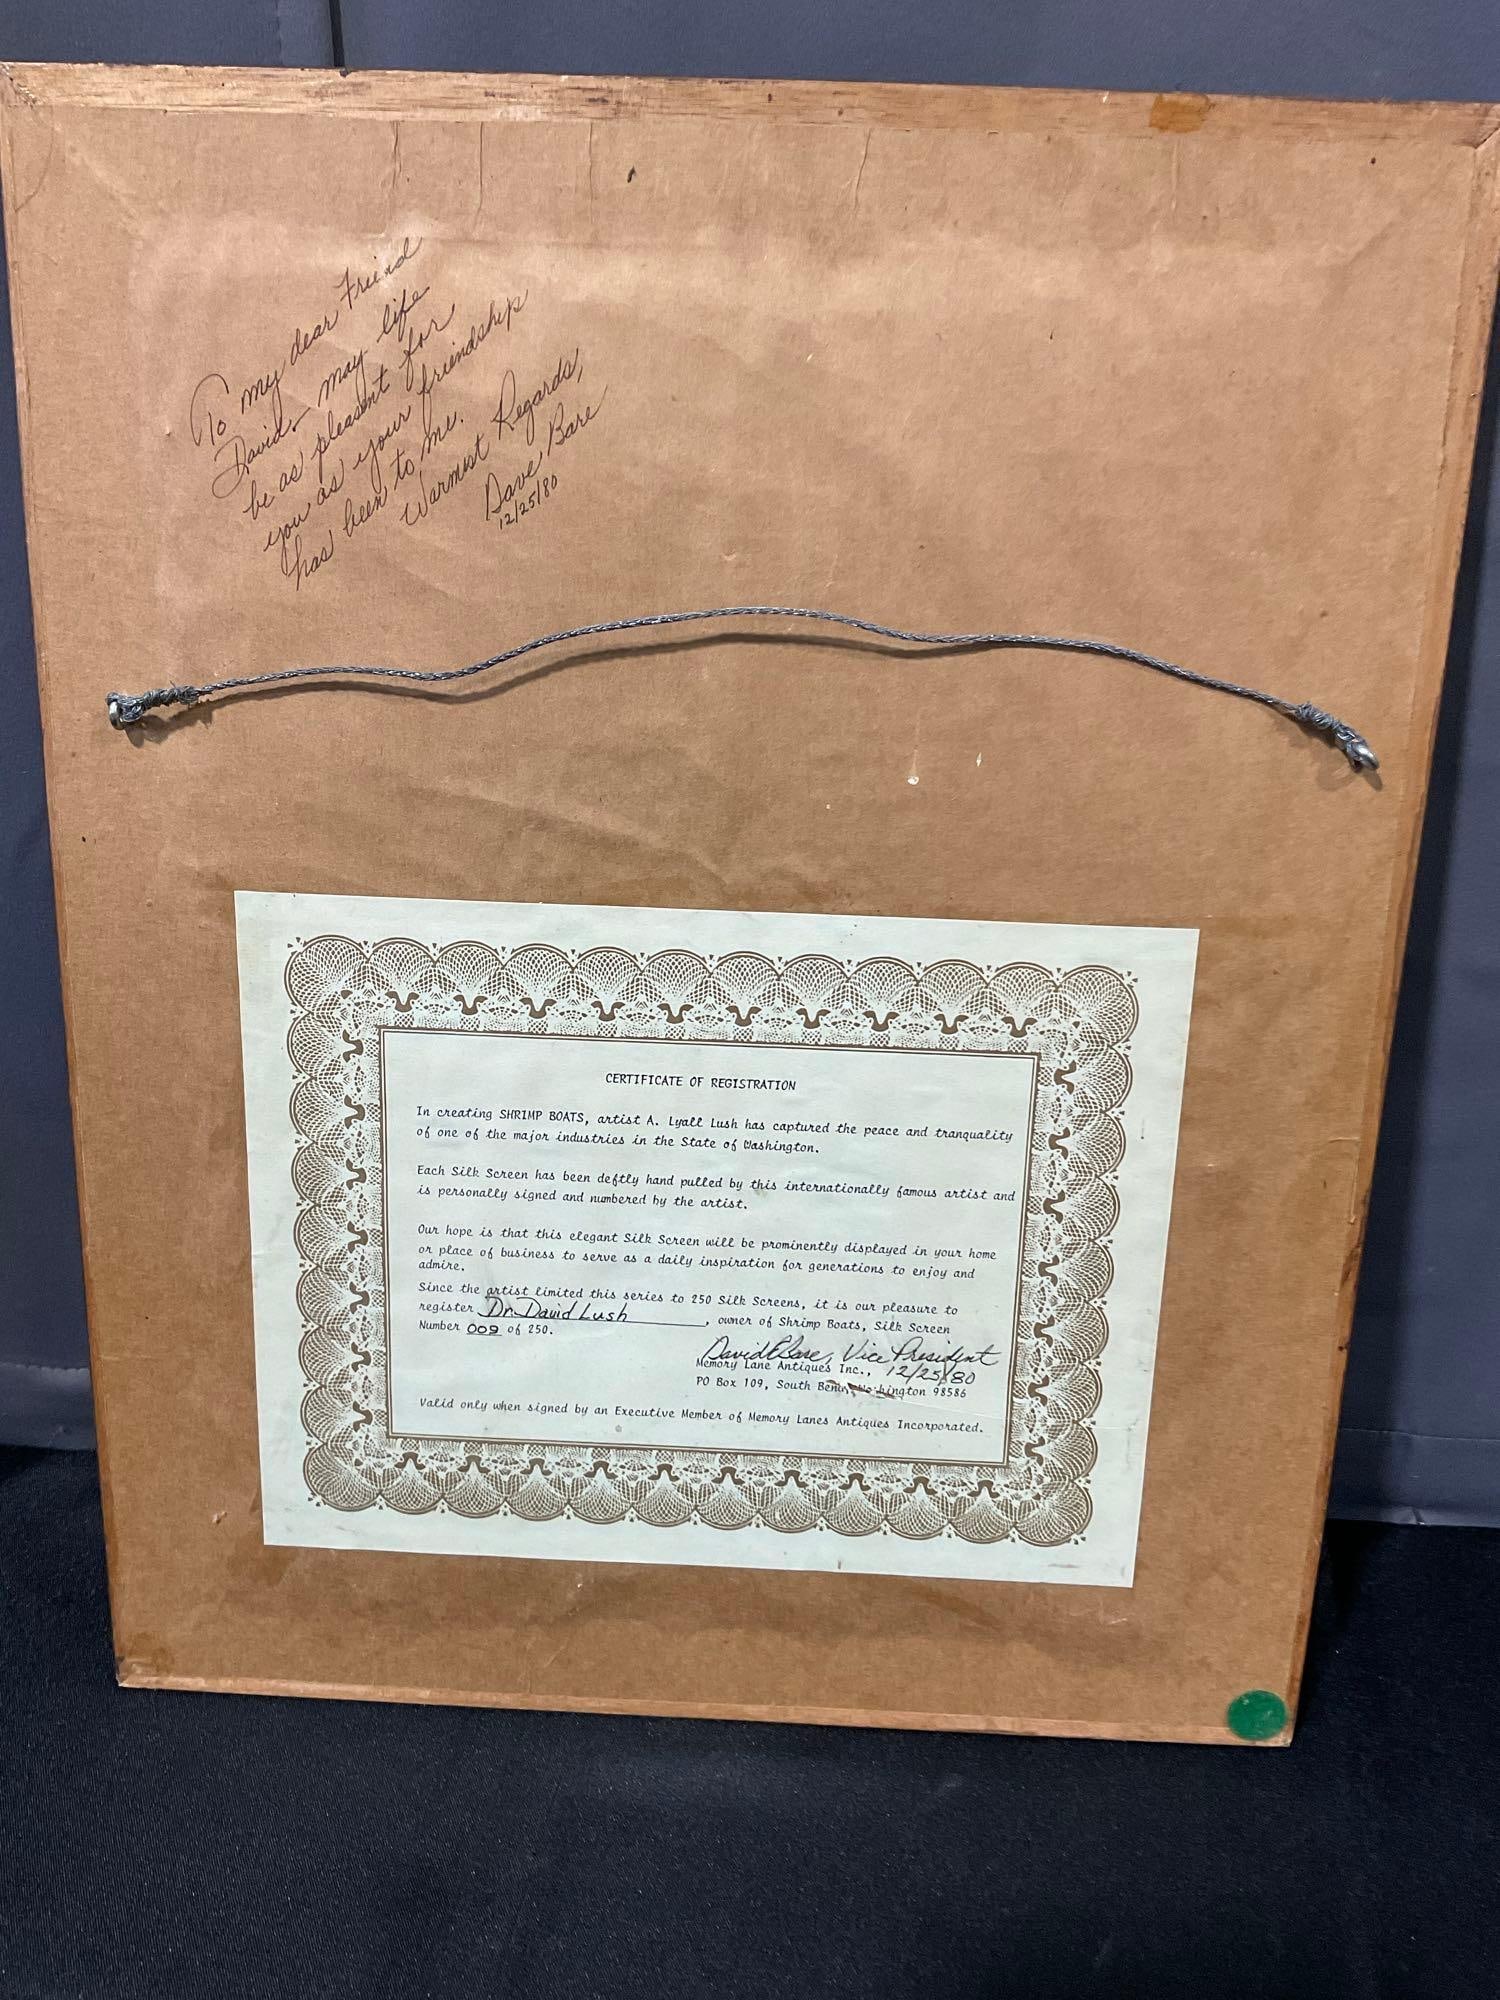 To my dear Friend
David - may life
be as pleasant for
you as your friendship
has been to me.
Warmest Regards,
Dave Bare
12/25/80
CERTIFICATE OF REGISTRATION
In creating SHRIMP BOATS, artist A. Lyall Lush has captured the peace and tranquality
of one of the major industries in the State of Washington.
Each Silk Screen has been deftly hand pulled by this internationally famous artist and
is personally signed and numbered by the artist.
Our hope is that this elegant Silk Screen will be prominently displayed in your home
or place of business to serve as a daily inspiration for generations to enjoy and
admire.
Since the artist limited this series to 250 Silk Screens, it is our pleasure to
register Dr. David Lush, owner of Shrimp Boats, Silk Screen
Number 009 of 250.
David E Bare, Vice President
Memory Lane Antiques Inc., 12/25/80
PO Box 109, South Bend, Washington 98586
Valid only when signed by an Executive Member of Memory Lanes Antiques Incorporated.